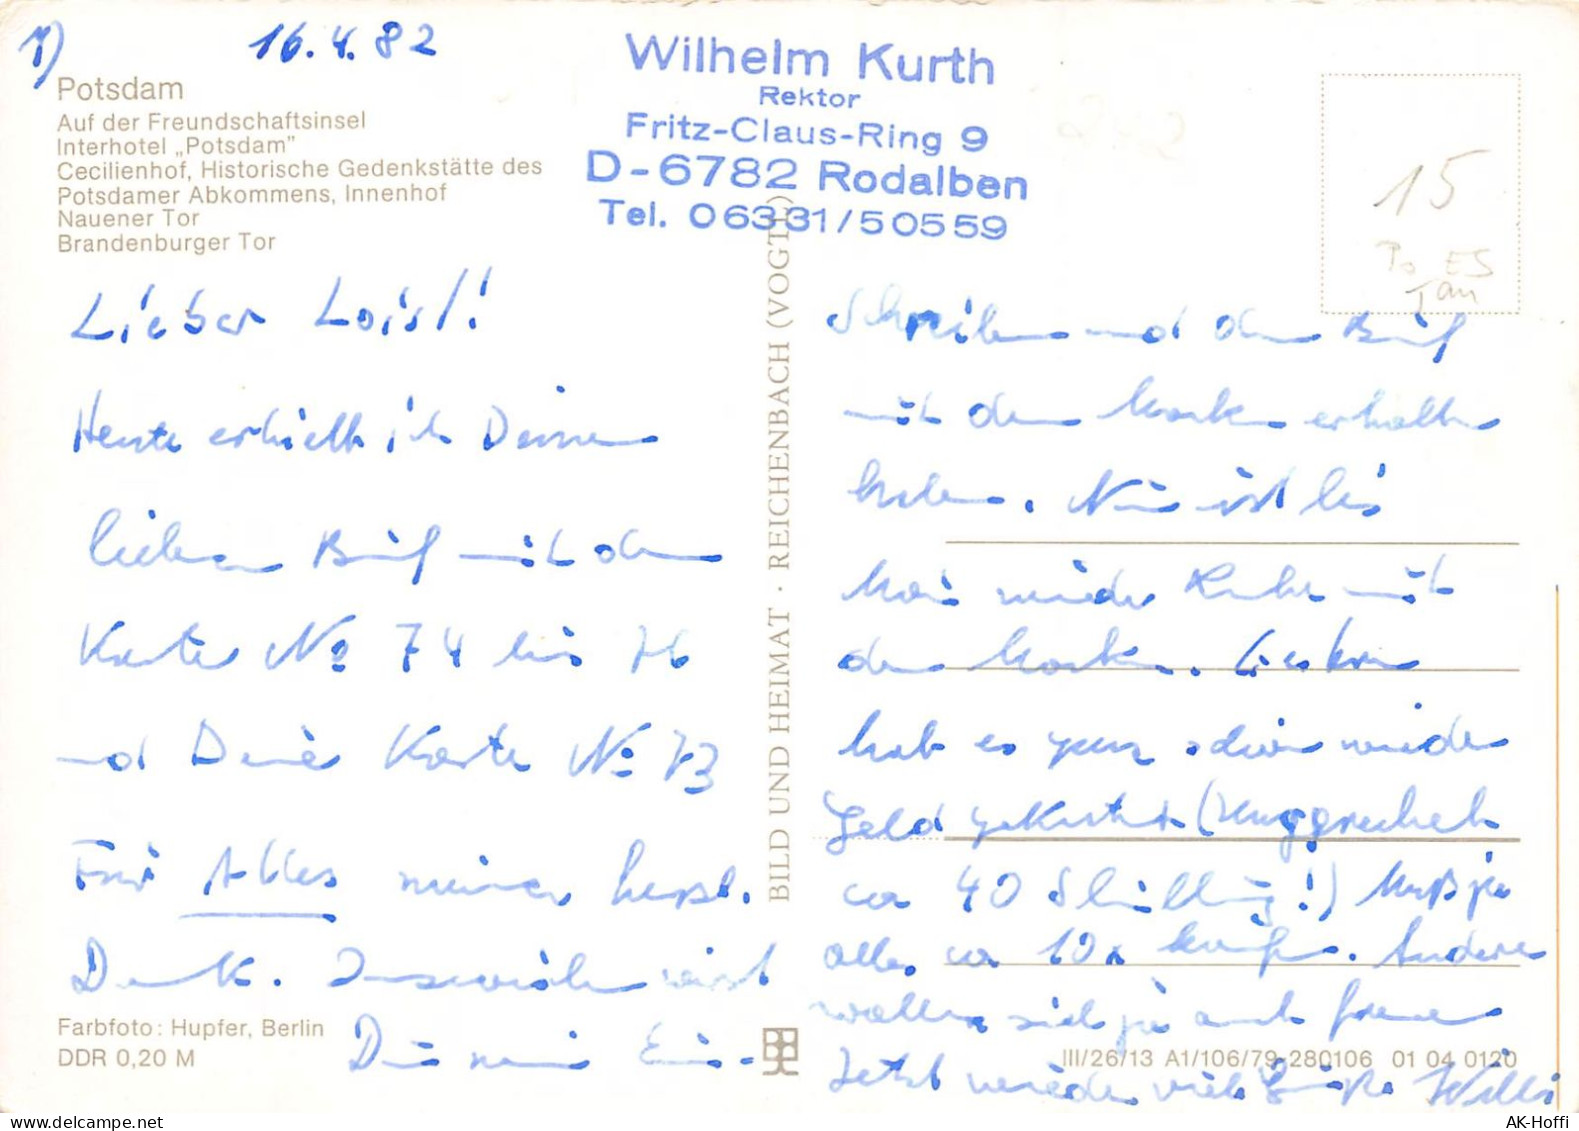 1)
16.4.82
Potsdam
Auf der Freundschaftsinsel
Interhotel „Potsdam"
Cecilienhof, Historische Gedenkstätte des
Potsdamer Abkommens, Innenhof
Nauener Tor
Brandenburger Tor
Wilhelm Kurth
Rektor
Fritz-Claus-Ring 9
D-6782 Rodalben
Tel. 06331/50559
15
Lieber Loisl!
Heute erhielt ich Deinen
lieben Brief mit den
Karten No 74 bis 76
und Deine Karte No 73
Für Alles meinen herzl.
Dank. Inzwischen wirst
Du mein Ein-
Farbfoto: Hupfer, Berlin
DDR 0,20 M
BILD UND HEIMAT · REICHENBACH (VOGTL)
Schreiben und den Brief
mit den Marken erhalten
haben. Nun ist bis
Mai wieder Ruhe mit
den Marken. Gestern
hab es ganz schön wieder
Geld gekostet (umgerechnet
ca 40 Shilling!) Muß ja
alles ca 10x kaufen. Andere
wollen sich ja auch freuen
Jetzt wieder viele Grüße Willi
III/26/13 A1/106/79 280106 01 04 0120
AK-Hoffi